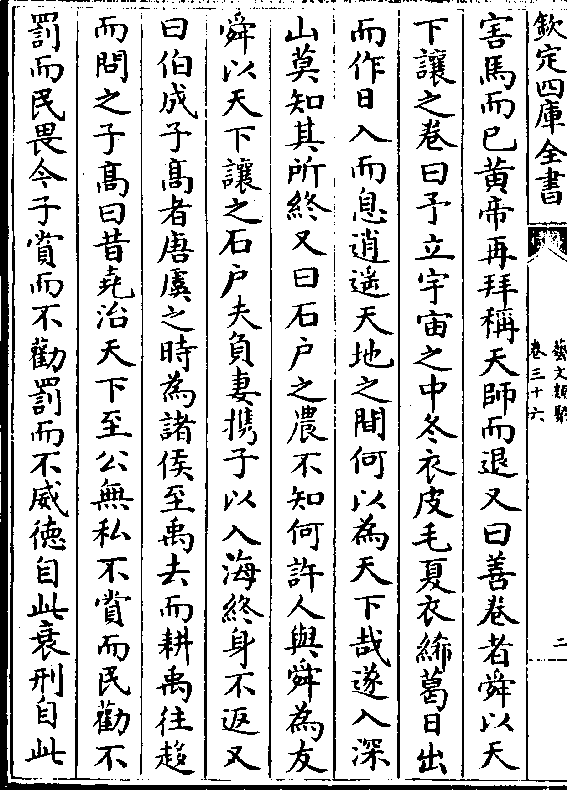 欽定四庫全書
藝文類聚
卷三十六
二
害馬而已黄帝再拜稱天師而退又曰善卷者舜以天
下讓之卷曰予立宇宙之中冬衣皮毛夏衣絺葛日出
而作日入而息逍遥天地之間何以為天下哉遂入深
山莫知其所終又曰石户之農不知何許人與舜為友
舜以天下讓之石户夫負妻携子以入海終身不返又
曰伯成子髙者唐虞之時為諸侯至禹去而耕禹往趍
而問之子髙曰昔堯治天下至公無私不賞而民勸不
罰而民畏今子賞而不勸罰而不威德自此衰刑自此